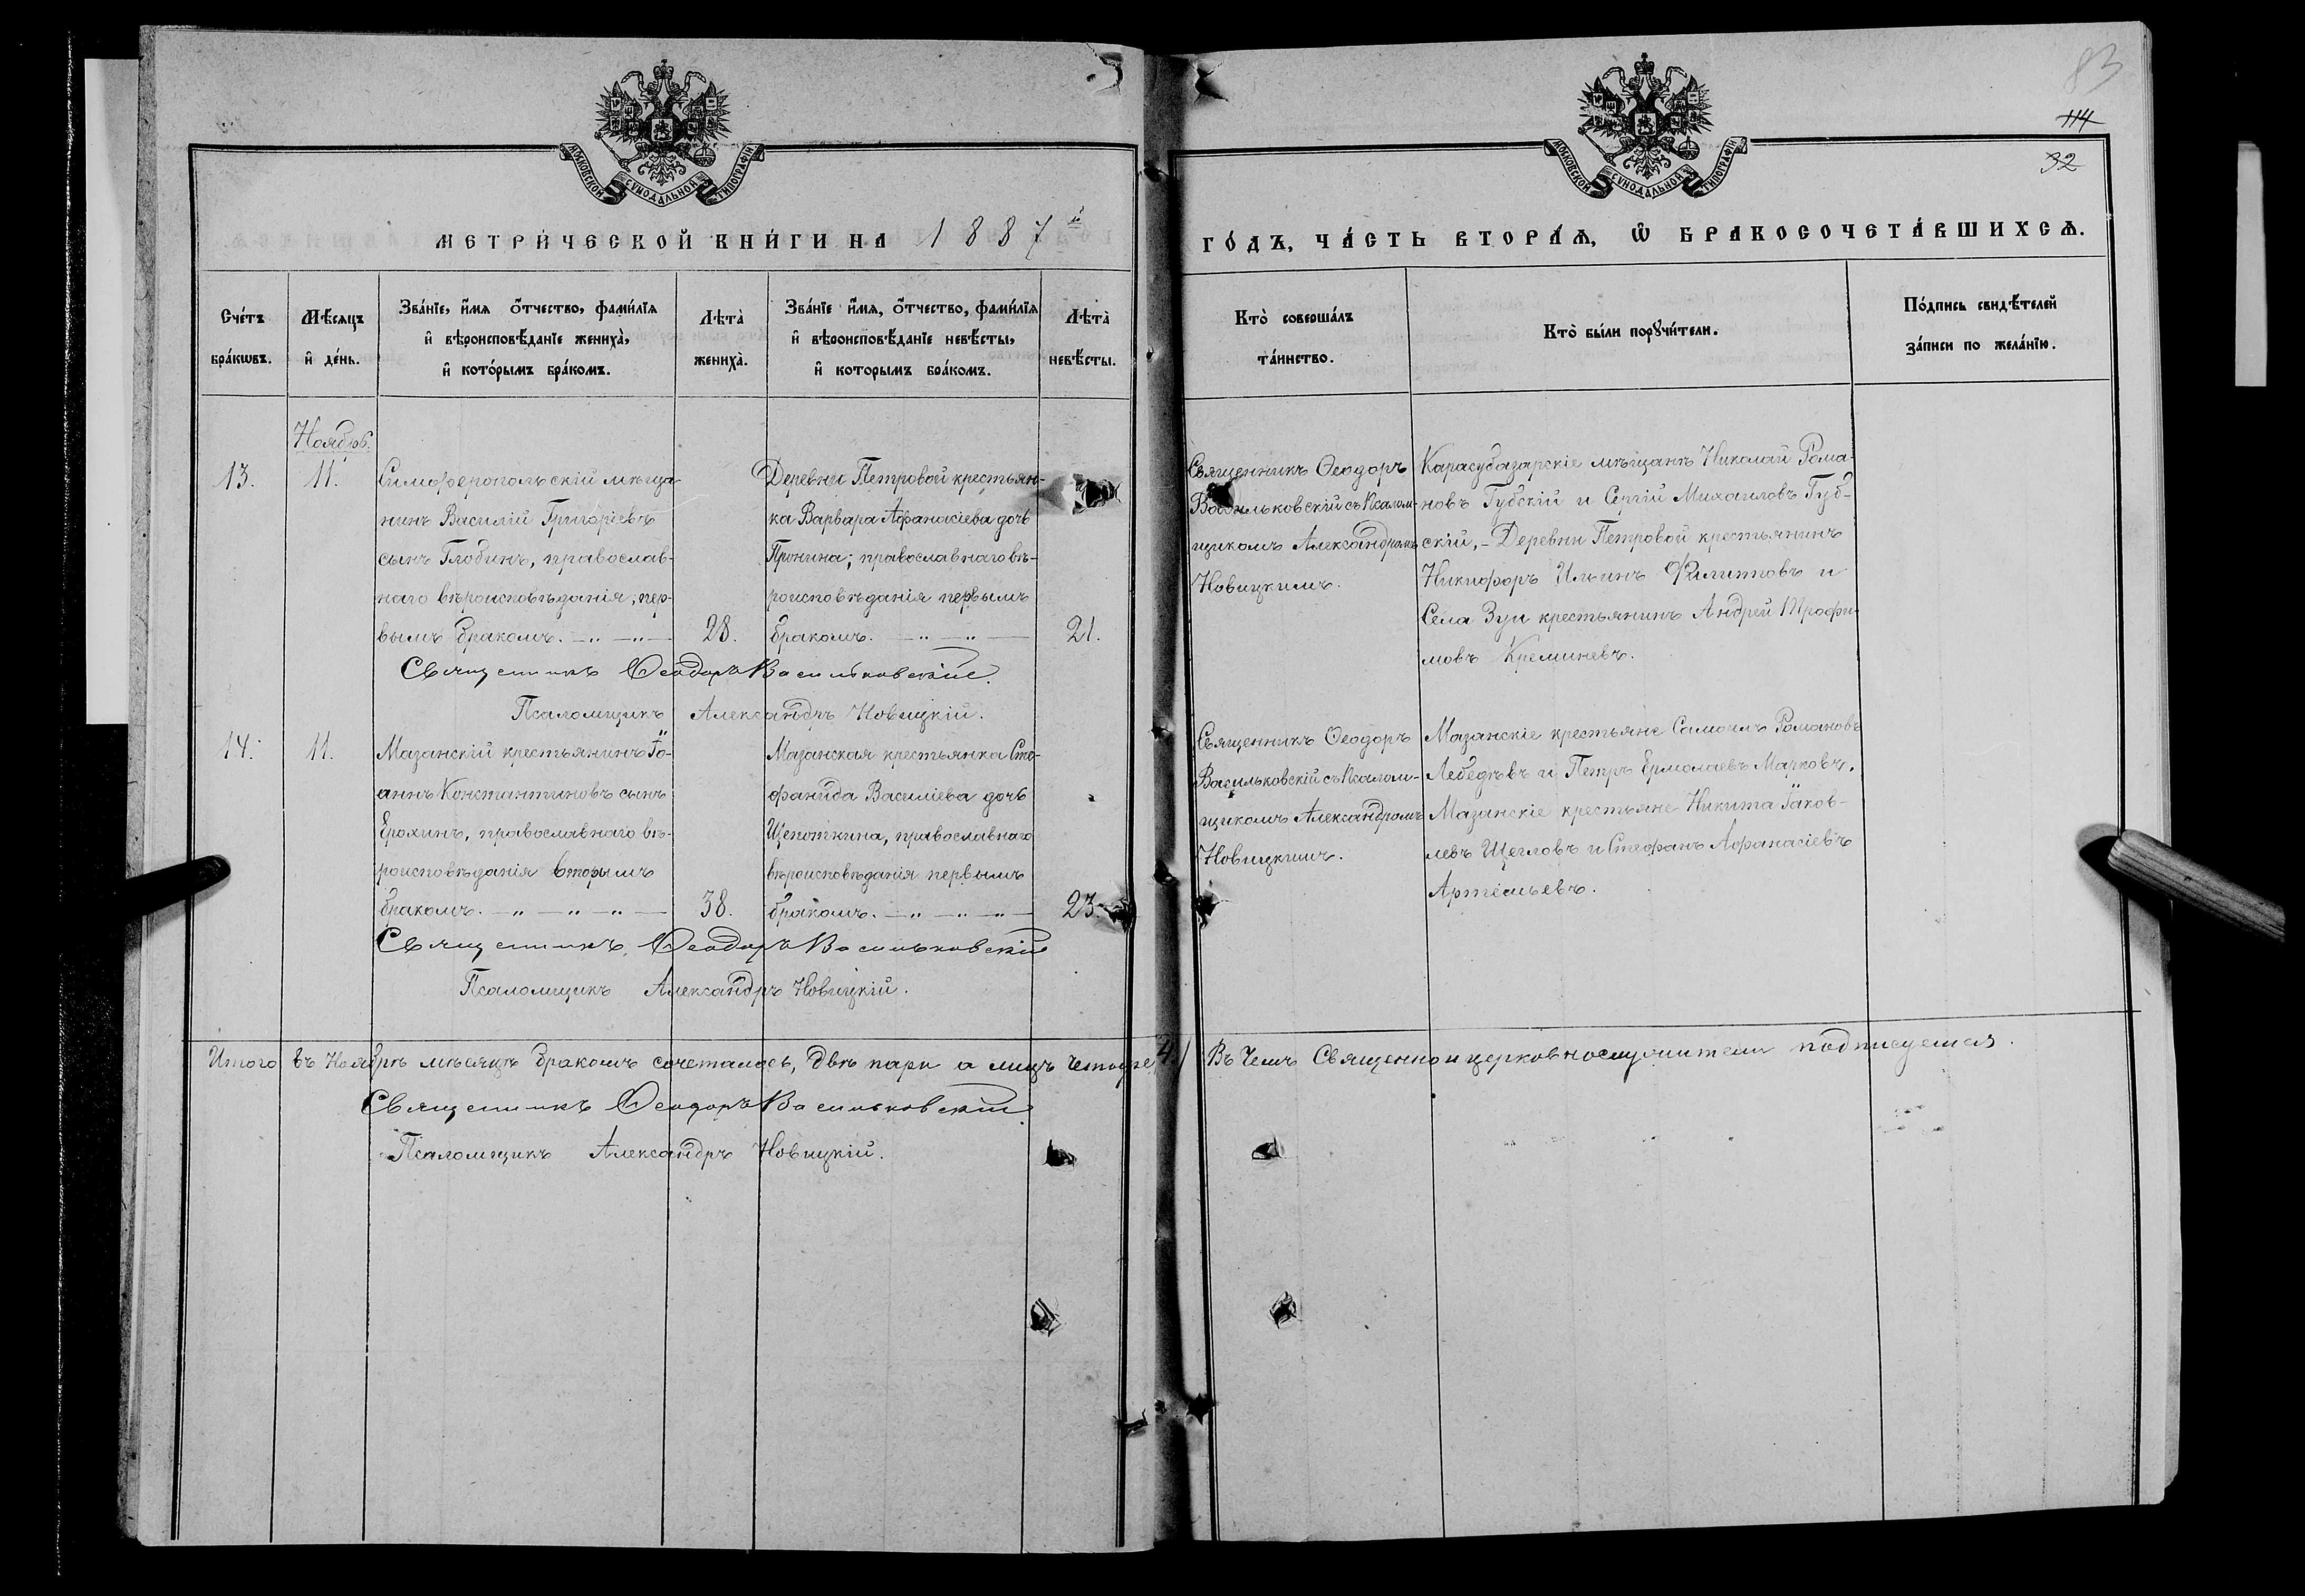 83
114
32
МОСКОВСКОЙ СѴНОДАЛЬНОЙ ТИПОГРАФІИ
МОСКОВСКОЙ СѴНОДАЛЬНОЙ ТИПОГРАФІИ
МЕТРИ́ЧЕСКОЙ КНИ́ГИ НА 1887й
ГО́ДЪ, ЧА́СТЬ ВТОРА́Ѧ, Ѽ БРАКОСОЧЕТА́ВШИХСѦ.
Сче́тъ
бра́кѡвъ.
Мѣ́сяцъ
и҆ де́нь.
Зва́нїе, и҆́мя ѻ҆́тчество, фами́лїя
и҆ вѣроисповѣ́данїе жениха̀,
и҆ кото́рымъ бра́комъ.
Лѣта̀
жениха̀.
Зва́нїе и҆́мя, ѻ҆́тчество, фами́лїя
и҆ вѣроисповѣ́данїе невѣ́сты,
и҆ которымъ бра́комъ.
Лѣта̀
невѣ́сты.
Кто̀ соверша́лъ
та́инство.
Кто̀ бы́ли порꙋчи́тели.
По́дпись свидѣ́телей
за́писи по жела́нїю.
Ноябрь.
13.
11.
Симферопольскій мѣща
нинъ Василій Григоріевъ
сынъ Глобинъ, православ-
наго вѣроисповѣданія, пер-
вымъ бракомъ. — „ — „ —
28.
Деревни Петровой крестьян-
ка Варвара Афанасіева дочь
Пронина; православнаго вѣ-
роисповѣданія первымъ
бракомъ. — „ — „ —
21.
Священникъ Ѳеодоръ
Васильковскій съ Псалом-
щикомъ Александромъ
Новицкимъ.
Карасубазарскіе мѣщане Николай Рома-
новъ Губскій и Сергій Михаиловъ Губ-
скій, - Деревни Петровой крестьянинъ
Никифоръ Ильинъ Филиповъ и
Села Зуи крестьянинъ Андрей Трофи-
мовъ Креминевъ.
Священникъ Ѳеодоръ Васильковскій.
Псаломщикъ Александръ Новицкій.
14.
11.
Мазанскій крестьянинъ Іо-
аннъ Константиновъ сынъ
Ерохинъ, православнаго вѣ-
роисповѣданія вторымъ
бракомъ. — „ — „ — „ —
38.
Мазанская крестьянка Сте-
фанида Василіева дочь
Щепоткина, православнаго
вѣроисповѣданія первымъ
бракомъ. — „ — „ — „ —
23.
Священникъ Ѳеодоръ
Васильковскій съ Псалом-
щикомъ Александромъ
Новицкимъ.
Мазанскіе крестьяне Самоилъ Романовъ
Лебедѣвъ и Петръ Ермолаевъ Марковъ,
Мазанскіе крестьяне Никита Іаков-
левъ Щегловъ и Стефанъ Афанасіевъ
Артемьевъ.
Священникъ Ѳеодоръ Васильковскій
Псаломщикъ Александръ Новицкій.
Итого въ Ноябрѣ мѣсяцѣ бракомъ сочеталось, двѣ пары а лицъ четыре (4.) Въ чемъ Священно и церковнослужители подписуемся.
Священникъ Ѳеодоръ Васильковскій
Псаломщикъ Александръ Новицкій.